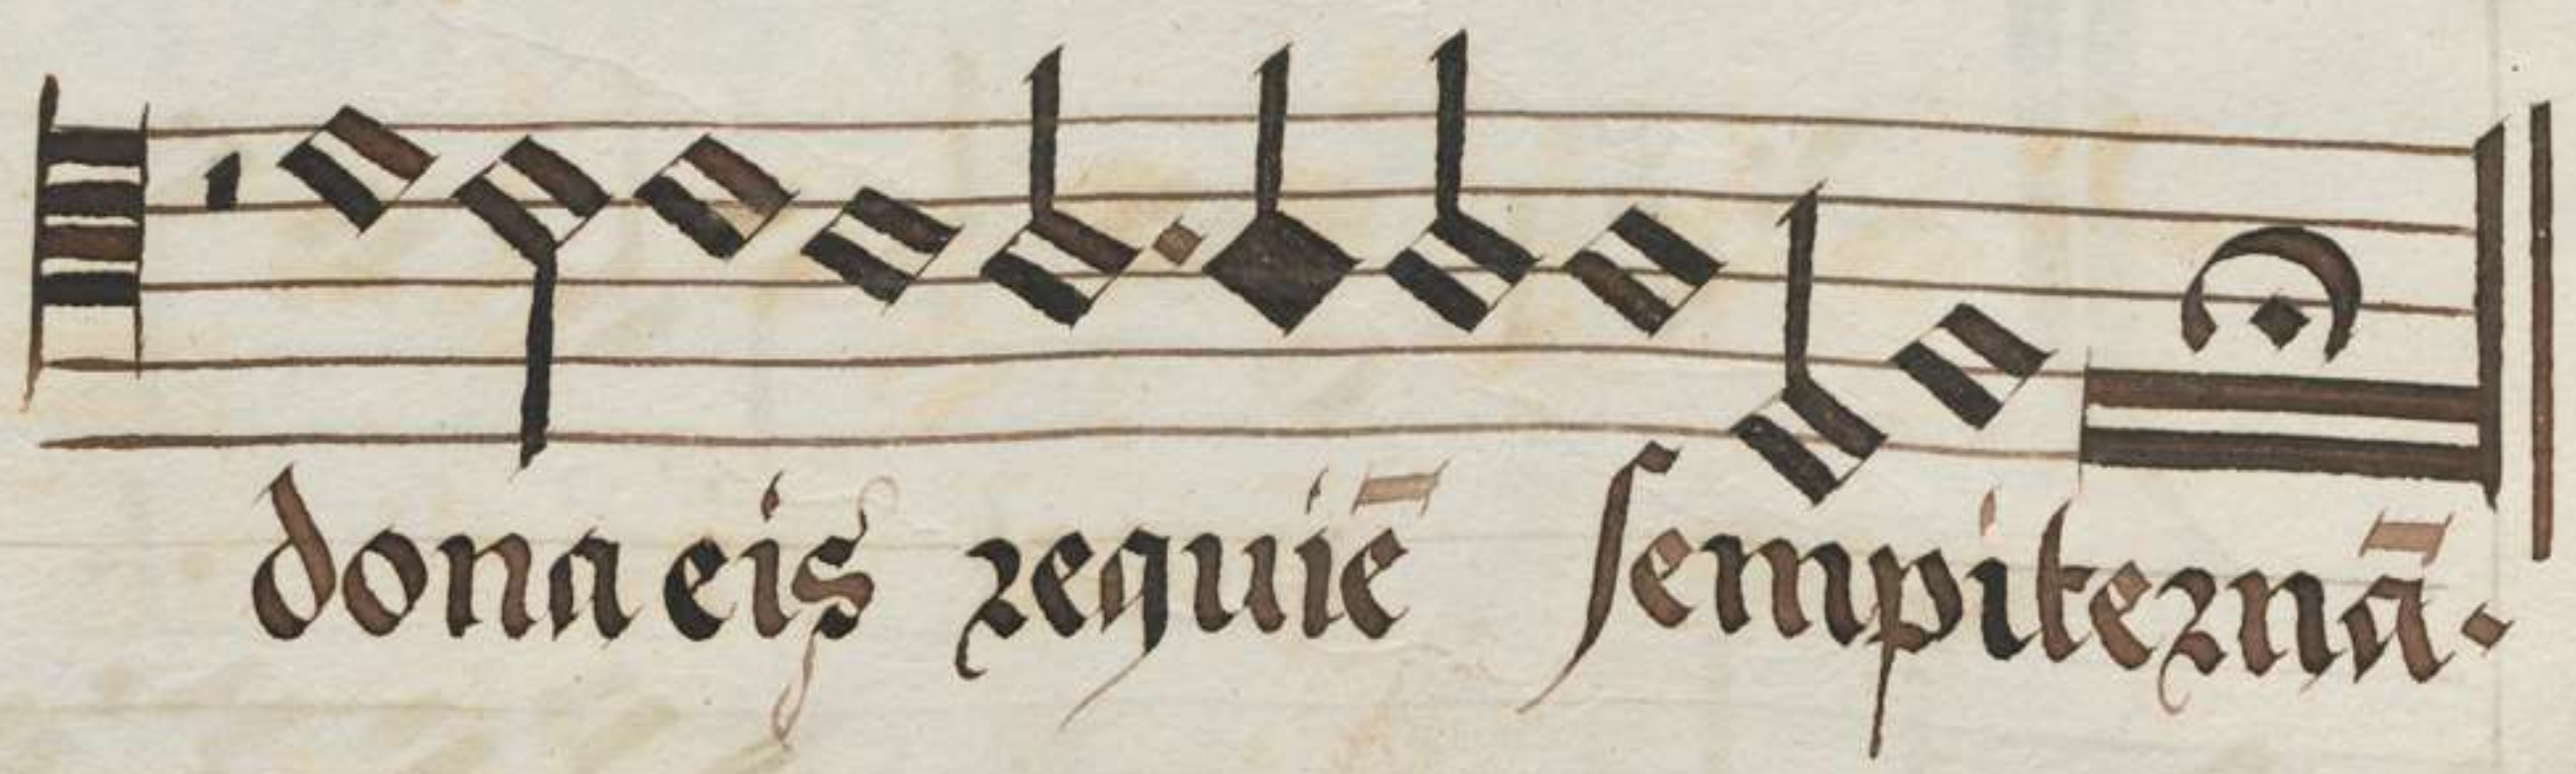 dona eis requiē sempiternā.